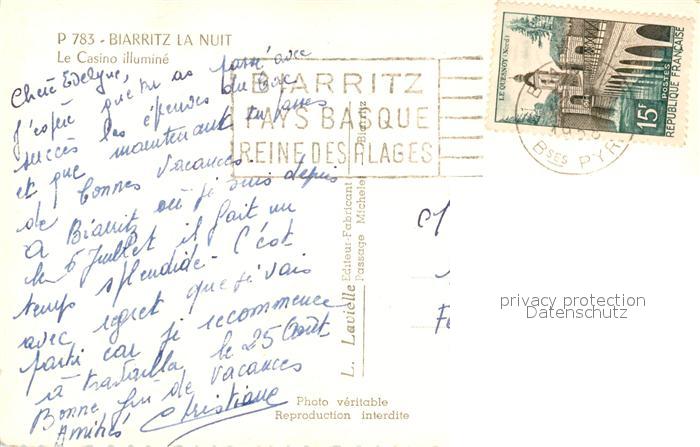 P 783 - BIARRITZ LA NUIT
Le Casino illuminé
Chère Evelyne,
J'espère que tu as passé avec
succès les épreuves du Bac
et que maintenant tu passes
de bonnes vacances
a Biarritz où je suis depuis
le 6 Juillet il fait un
temps splendide - C'est
avec regret que je vais
partir car je recommence
à travailler le 25 Août
Bonne fin de vacances
Amitiés Christiane
BIARRITZ
PAYS BASQUE
REINE DES PLAGES
LE QUESNOY (Nord)
15F
POSTES
REPUBLIQUE FRANÇAISE
BSES PYR
L. Lavielle Editeur-Fabricant
Passage Michelet Biarritz
privacy protection
Datenschutz
Photo véritable
Reproduction interdite